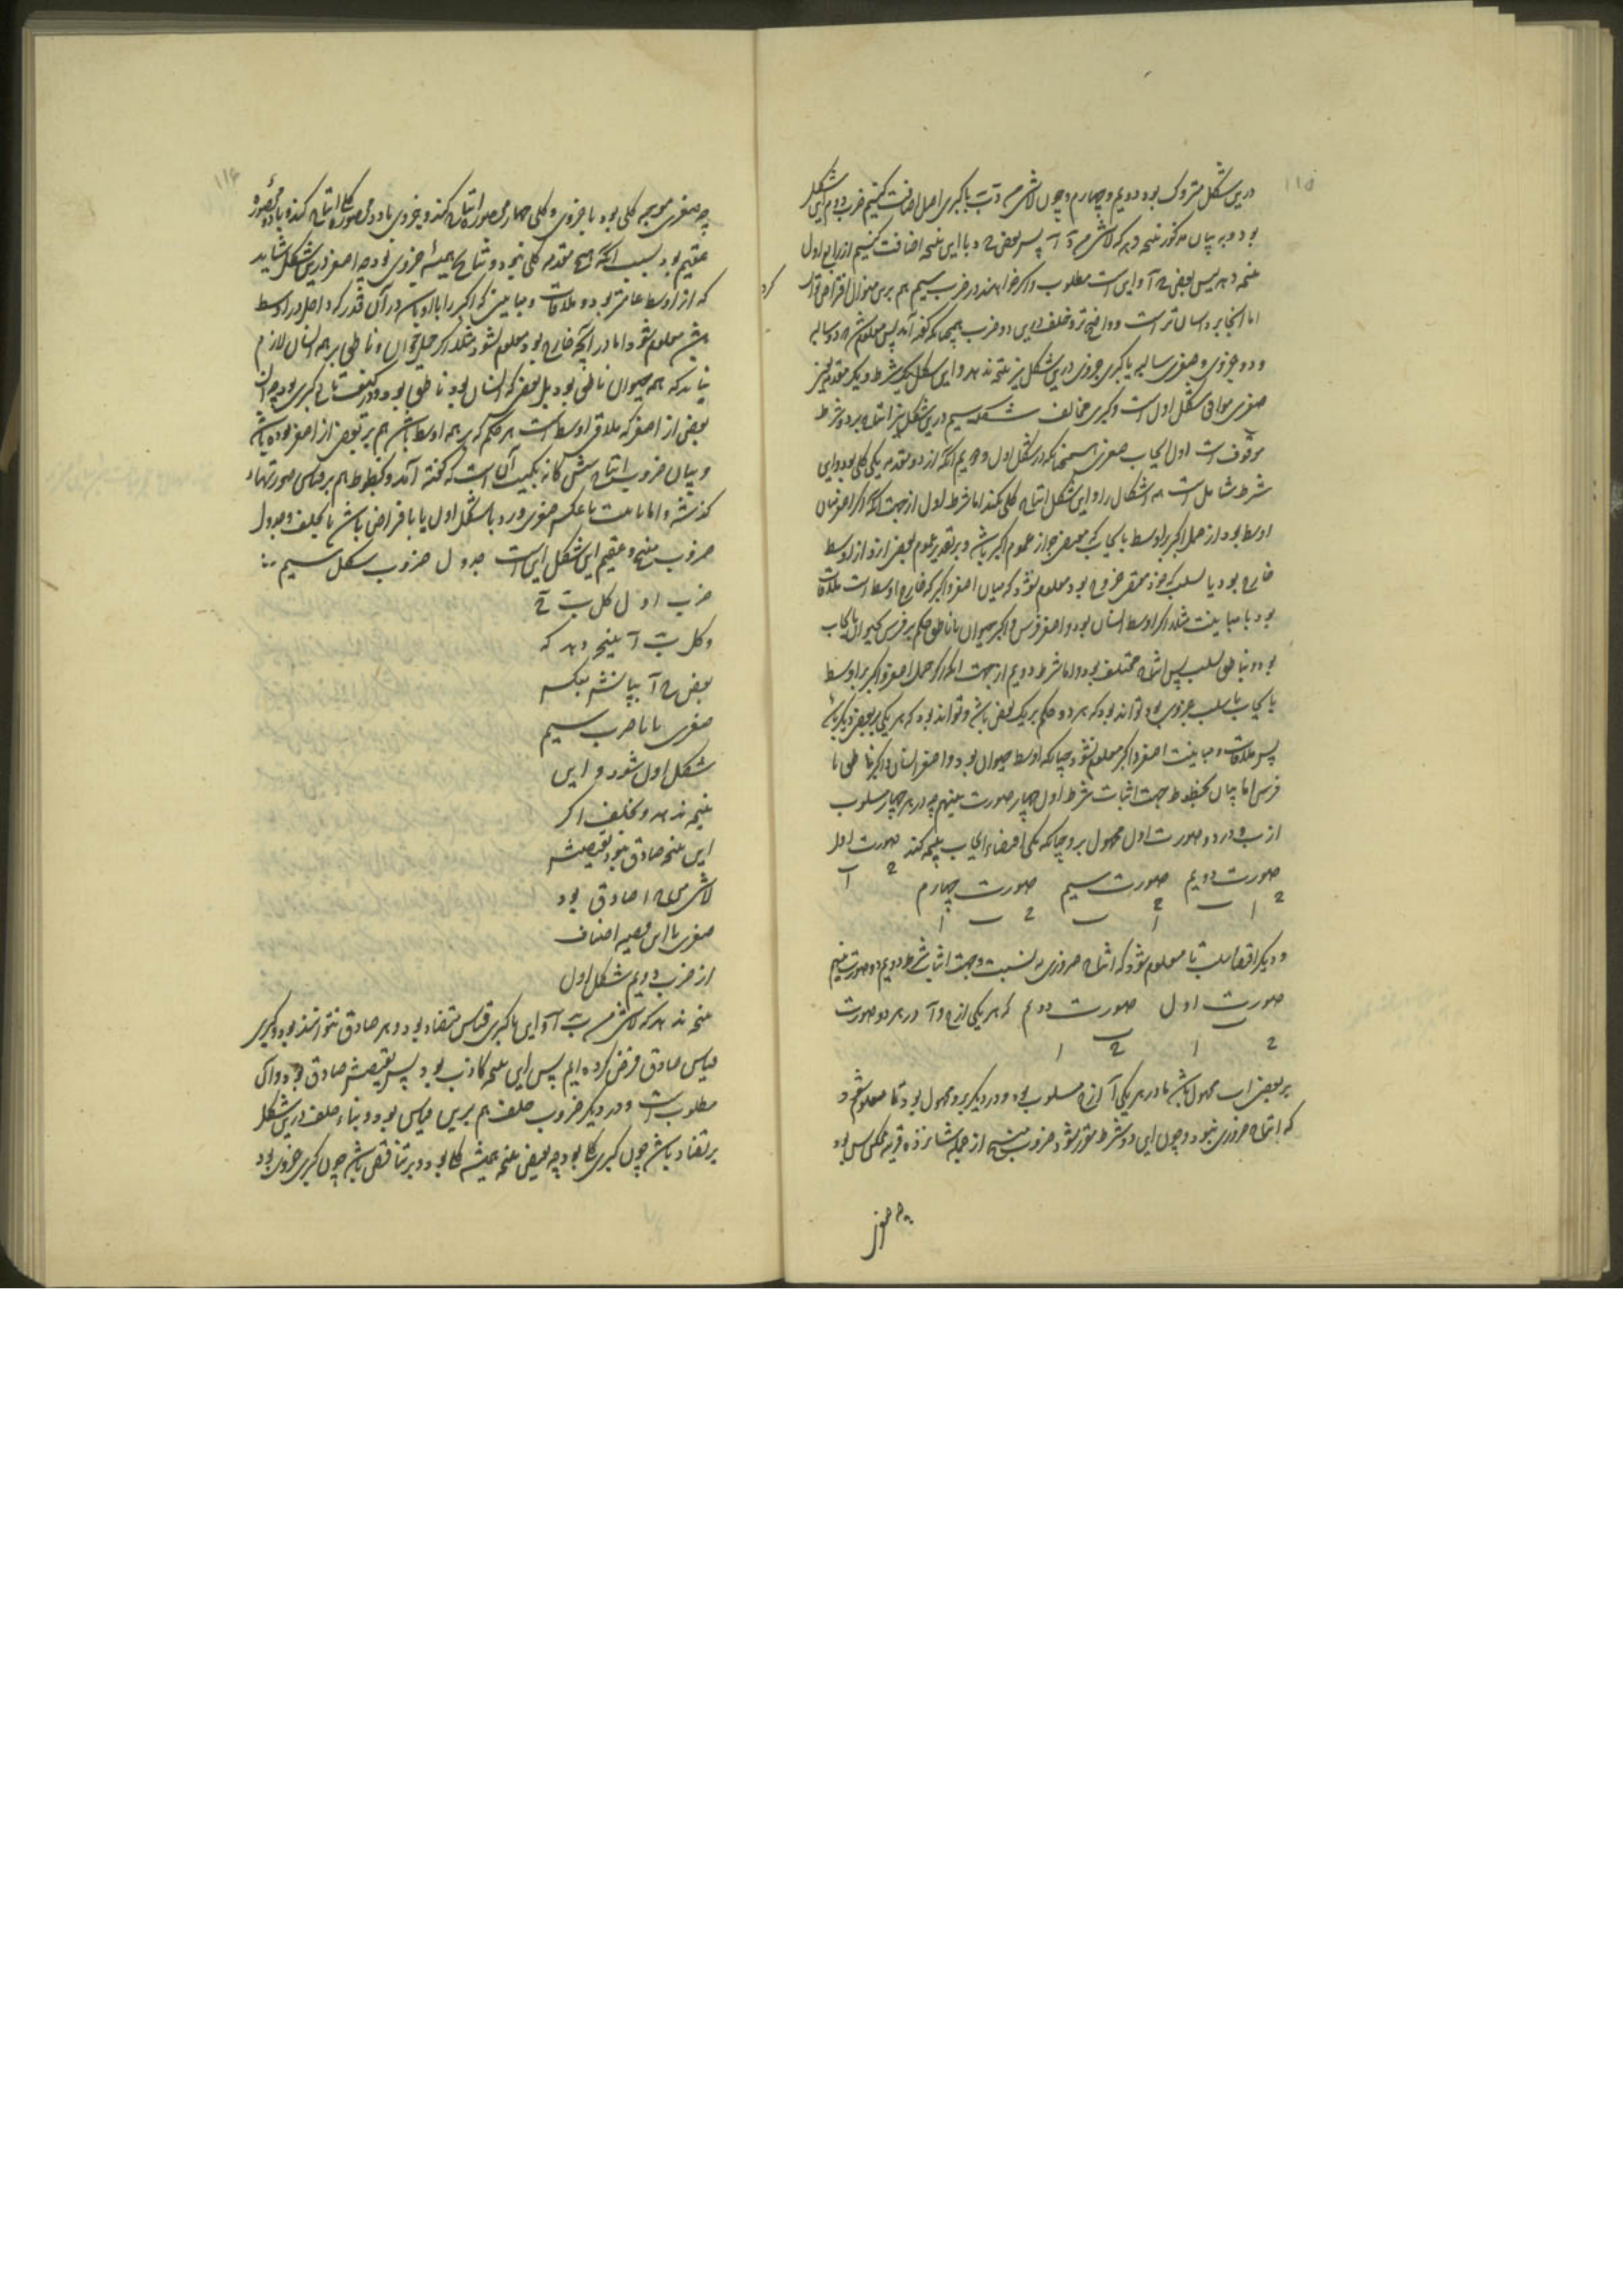 ۱۱۵
درین شکل متروک بود دویم و چهارم و چون لاشی من د ب با کبری اصل اضافت کنیم ضرب دویم این شکل
بود و به بیان مذکور نتیجه دهد که لاشی من د آ پس بعض ج د با این نتیجه اضافت کنیم از رابع اول
نتیجه دهد پس بعض ج آ و این است مطلوب و اگر خواهند در ضرب سیم هم برین منوال افتراض توان
کرد
اما آنجا بر د آسان تر است و واضح تر و خلف درین دو ضرب همچنانکه گفته آمد پس معلوم شد که دو سالبه
و دو جزوی و صغری سالبه با کبری جزوی درین شکل نیز نتیجه ندهد و این شکل بیک شرط و یک مقدمه یعنی
صغری موافق شکل اول است و کبری مخالف شکل سیم درین شکل نیز انتاج بر دو شرط
موقوف است اول ایجاب صغری همچنانکه در شکل اول و دویم آنکه از دو مقدمه یکی کلی بود و این
شرط شامل است همه اشکال را و این شکل انتاج کلی نکند اما شرط اول از جهت آنکه اگر اصغر مباین
اوسط بود از حمل اکبر بر اوسط بایجاب که مقتضی جواز عموم اکبر باشد و بر تقدیر عموم بعضی ازو از اوسط
خارج بود یا بسلب که خود مقتضی خروج بود معلوم نشود که میان اصغر و اکبر که خارج اوسط است ملاقات
بود یا مباینت مثلا اگر اوسط انسان بود و اصغر فرس و اکبر حیوان یا ناطق حکم بر فرس بحیوان بایجاب
بود و بناطق بسلب پس انتاج مختلف بود و اما شرط دویم از جهت آنکه اگر حمل اصغر و اکبر بر اوسط
بایجاب یا سلب جزوی بود تواند بود که هر دو حکم بر یک بعض باشد و تواند بود که هر یکی بر بعض دیگر باشد
پس ملاقات و مباینت اصغر و اکبر معلوم نشود چنانکه اوسط حیوان بود و اصغر انسان و اکبر ناطق یا
فرس اما بیان بخطوط جهت اثبات شرط اول چهار صورت بنهیم چه در هر چهار مسلوب
از ب و در دو صورت اول محمول بر و چنانکه یکی اقتضاء ایجاب نتیجه کند صورت اول
ج آ
صورت دویم صورت سیم صورت چهارم
ج ا ب ج ا ب ج ب ا
و دیگر اقتضاء سلب تا معلوم شود که انتاج ضروری نیست و جهت اثبات شرط دویم دو صورت بنهیم
صورت اول صورت دوم که هر یکی از ج و آ در هر دو صورت
ج ب ا ج ب ا
بر بعض ب محمول باشد و در هر یکی آ از ج مسلوب بود و در دیگر برو محمول بود تا معلوم شود
که انتاج ضروری نبود و چون این دو شرط مقرر شود ضروب منتج از جمله شانزده قرینه ممکن شش بود
چه صغری
۱۱۶
چه صغری موجبه کلی بود با جزوی و کلی چهار محصوره انتاج کند و جزوی با دو محصوره کلی انتاج کند و با دو محصوره
عقیم بود بسبب آنکه هیچ مقدمه کلی نبود و نتایج همیشه جزوی بود چه اصغر درین شکل شاید
که از اوسط عامتر بود و ملاقات و مباینتی که اکبر را با او باشد در آن قدر که داخل در اوسط
باشد معلوم شود اما در آنچه خارج بود معلوم نشود مثلا اگر حمل حیوان و ناطق بر همه انسان لازم
نیاید که همه حیوان ناطق بود بل بعضی که انسان بود ناطق بود و در کیفیت تابع کبری بود چه آن
بعض از اصغر که ملاقی اوسط است هر حکم که بر همه اوسط باشد هم بر بعض از اصغر بوده باشد
و بیان ضروب انتاج شش گانه بلمیت آن است که گفته آمد و بخطوط هم بر قیاس صورتهاء
گذشته و اما بانیت یا عکس صغری و رد با شکل اول یا بافتراض باشد یا بخلف و جدول
ضروب منتج و عقیم این شکل این است جدول ضروب شکل سیم ∴
ضرب اول کل ب ج
و کل ب آ نتیجه دهد که
بعض ج آ بیانش بعکس
صغری باشد تا ضرب سیم
شکل اول شود و این
نتیجه دهد و بخلف اگر
این نتیجه صادق نبود نقیضش
لاشی من ج ا صادق بود
صغری با این قضیه اضافت
از ضرب دویم شکل اول
نتیجه دهد که لاشی من ب آ و این با کبری قیاس متضاد بود و هر دو صادق نتوانند بود و کبری
قیاس صادق فرض کرده ایم پس این نتیجه کاذب بود پس نقیضش صادق بود و آن
مطلوب است و در دیگر ضروب خلف هم برین قیاس بود و بناء خلف درین شکل
بر تضاد باشد چون کبری کلی بود چه نقیض نتیجه همیشه کلی بود و بر تناقض باشد چون کبری جزوی بود